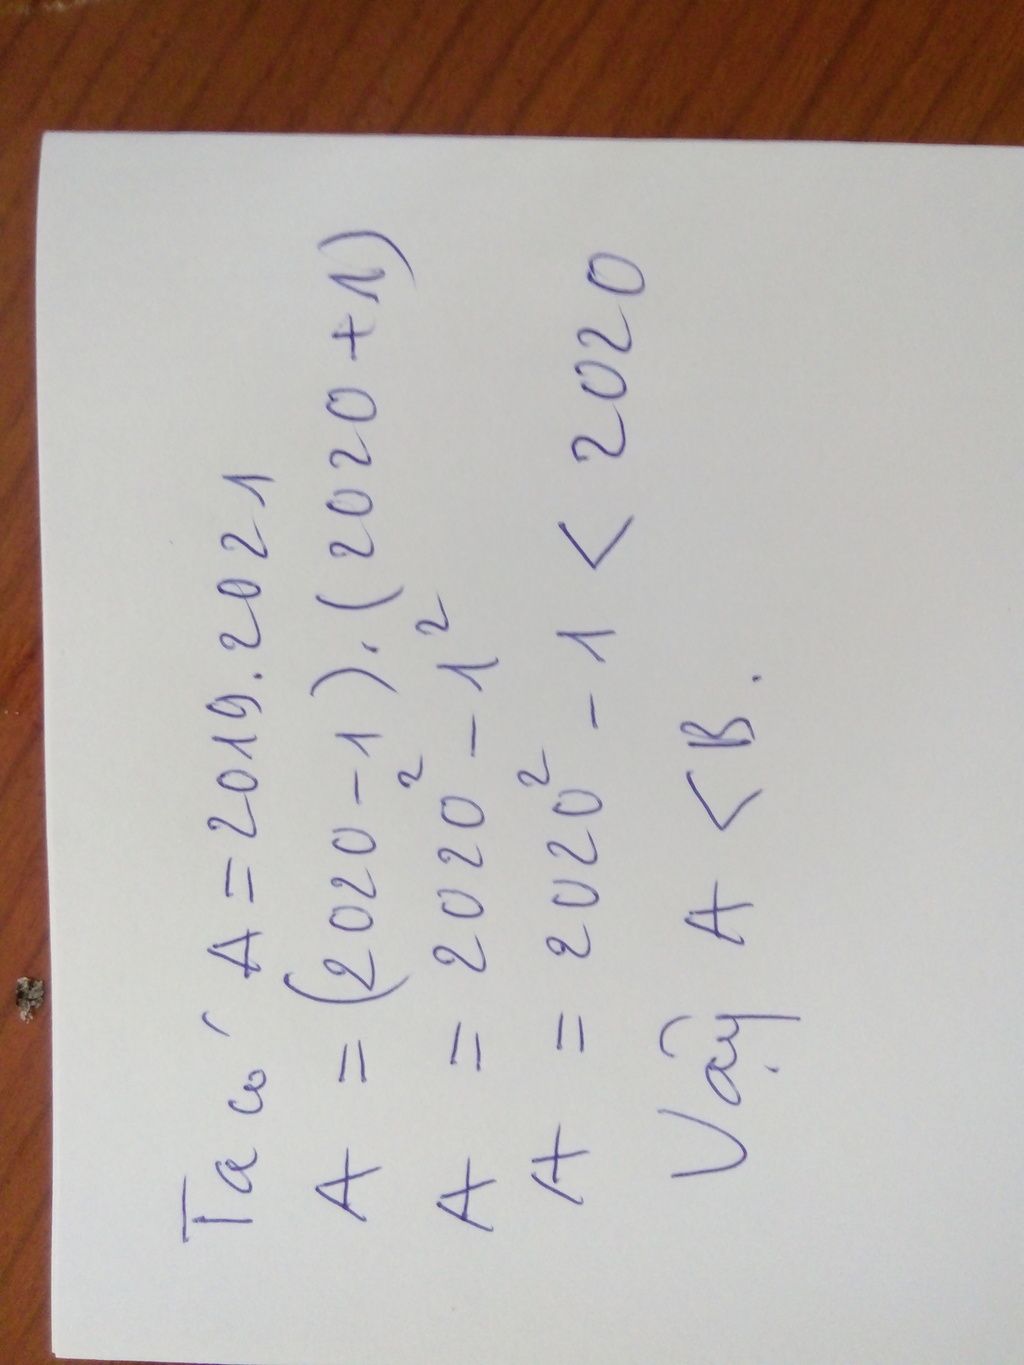 Ta có A = 2019.2021
A = (2020 - 1).(2020 + 1)
A = 2020² - 1²
A = 2020² - 1 < 2020
Vậy A < B.